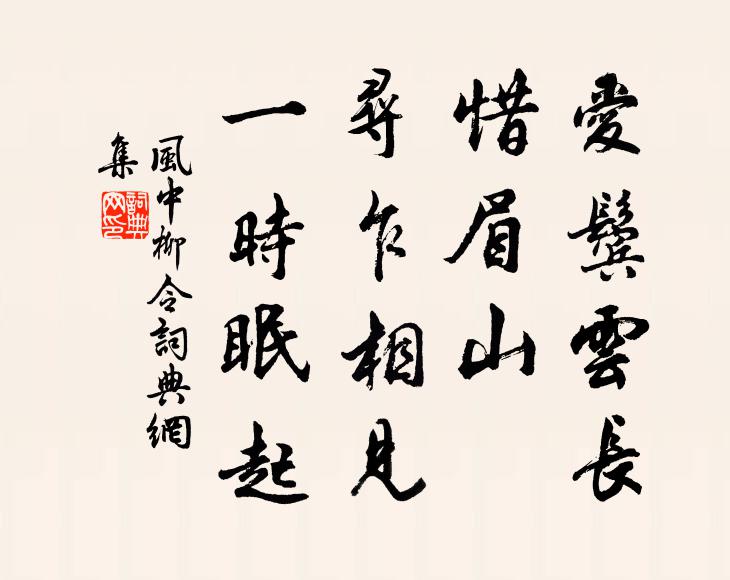 愛鬢雲長
惜眉山
尋乍相見
一時眠起
風中柳令詞典網
集
詞典網印